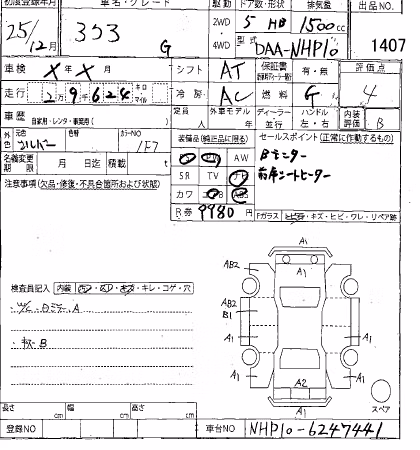 初度登録年月 車名・グレード 駆動 ドア数・形状 排気量 出品NO
25/12月 G 2WD・4WD 5 HB 1500cc
型式 DAA-NHP10 1407
車検 X年X月 シフト AT 保証書 有・無 評価点
走行 2万9千624 キロ マイル 冷房 AC 燃料 G 4
車歴 自家用・レンタ・事業用( ) 定員 人 外車モデル 年 ディーラー 並行 ハンドル 左・右 内装評価 B
外色 元色 シルバー 色替 カラーNO 1F7
装備品(純正品に限る) セールスポイント(正常に作動するもの)
名義変更期限 月 日迄 積載 t
AW
Bモニター
SR TV ナビ
前席シートヒーター
注意事項(欠品・修復・不具合箇所および状態)
カワ
R券 9980円
Fガラス トビ石・キズ・ヒビ・ワレ・リペア跡
検査員記入 内装 キレ・コゲ・穴
A
キズB
A1
AB2 A1
AB2
B1
A1 A1
A1 A1
A2
A1
スペア
長さ cm 幅 cm 高さ cm
登録NO 車台NO NHP10-6247441